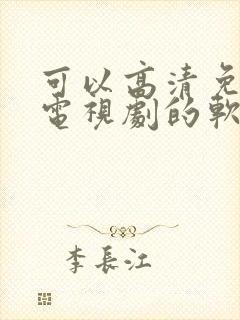 可以高清免
電視劇的軟
李長江